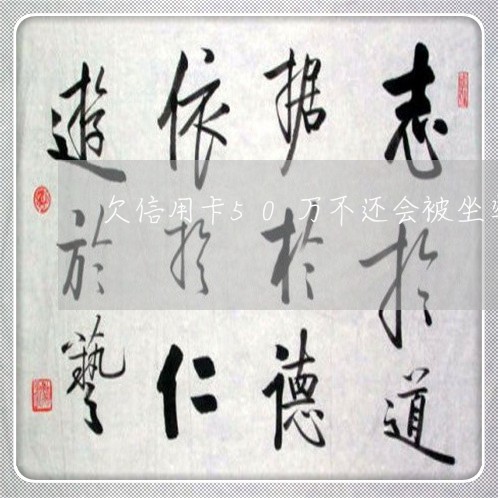 志於道
据於德
依於仁
遊於藝
欠信用卡50万不还会被坐